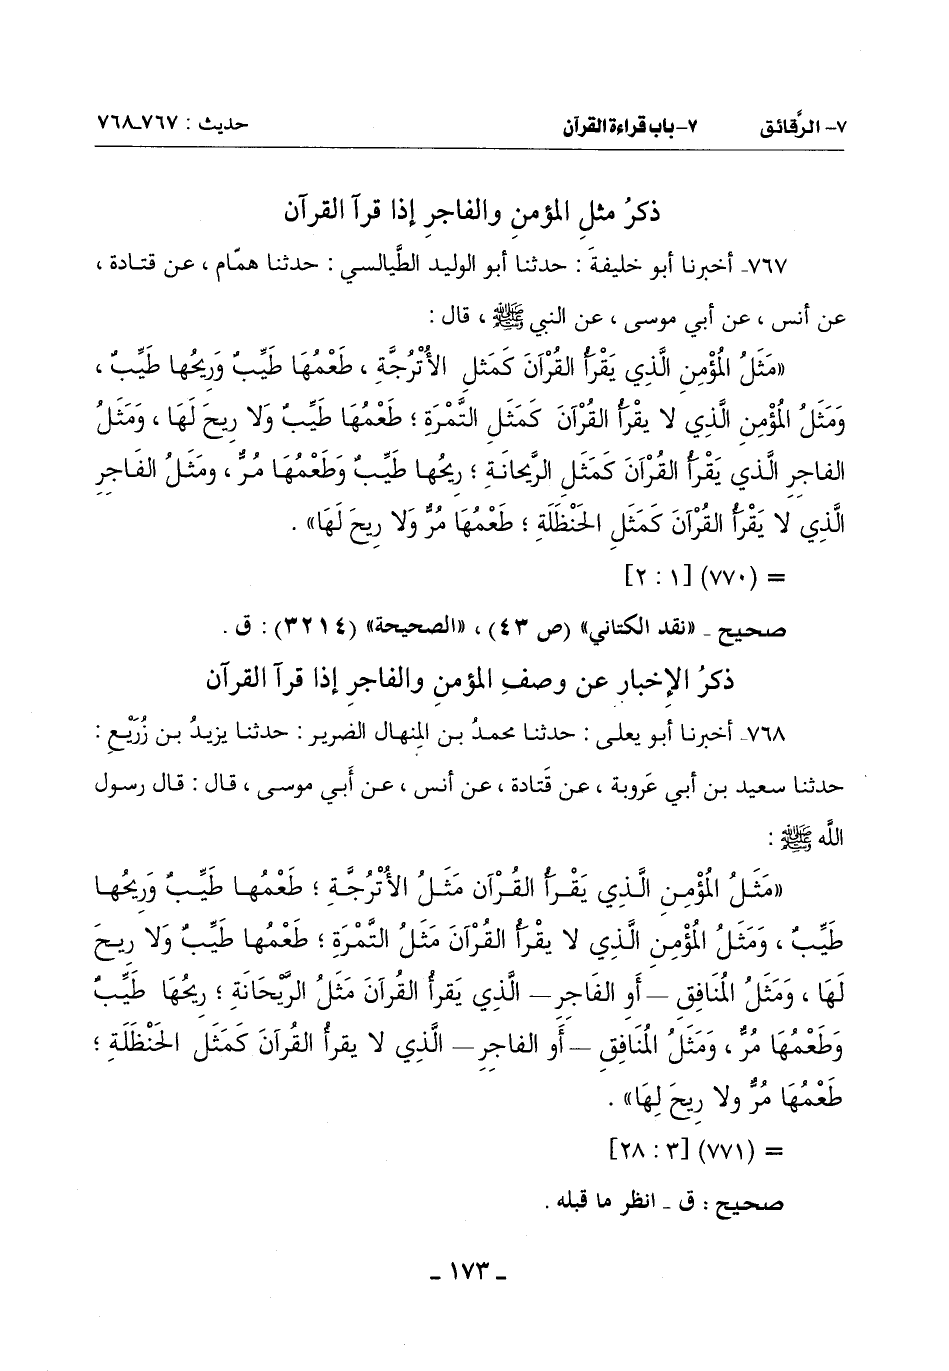 ٧- الرَّقائق ٧- باب قراءة القرآن حديث : ٧٦٧ـ٧٦٨
ذكرُ مثلِ المؤمنِ والفاجرِ إذا قرآ القرآن
٧٦٧ـ أخبرنا أبو خليفةَ : حدثنا أبو الوليد الطَّيالسي : حدثنا همّام ، عن قتادة ،
عن أنس ، عن أبي موسى ، عن النبي ﷺ ، قال :
«مَثَلُ المُؤْمِنِ الَّذي يَقْرَأُ القُرْآنَ كَمَثَلِ الأُتْرُجَّةِ ، طَعْمُهَا طَيِّبٌ وَرِيحُها طَيِّبٌ ،
وَمَثَلُ المُؤْمِنِ الَّذي لا يقْرَأُ القُرْآنَ كَمَثَلِ التَّمْرَةِ ؛ طَعْمُهَا طَيِّبٌ وَلا رِيحَ لَهَا ، وَمَثَلُ
الفاجرِ الَّذي يَقْرَأُ القُرْآنَ كَمَثَلِ الرَّيحانَةِ ؛ ريحُها طَيِّبٌ وَطَعْمُهَا مُرٌّ ، ومَثَلُ الفَاجرِ
الَّذِي لا يَقْرَأُ القُرْآنَ كَمَثَلِ الحَنْظَلَةِ ؛ طَعْمُهَا مُرٌّ وَلا رِيحَ لَهَا» .
= (٧٧٠) [١ : ٢]
صحيح ـ «نقد الكتاني» (ص ٤٣) ، «الصحيحة» (٣٢١٤) : ق .
ذكرُ الإخبار عن وصفِ المؤمنِ والفاجرِ إذا قرآ القرآن
٧٦٨ـ أخبرنا أبو يعلى : حدثنا محمدُ بن المِنهال الضرير : حدثنا يزيدُ بن زُرَيْعٍ :
حدثنا سعيد بن أبي عَروبة ، عن قَتادة ، عن أنس ، عن أَبي موسى ، قال : قال رسول
اللَّه ﷺ :
«مَثَلُ المُؤْمِنِ الَّذِي يَقْرَأُ القُرْآن مَثَلُ الأُتْرُجَّةِ ؛ طَعْمُها طَيِّبٌ وَرِيحُها
طَيِّبٌ ، وَمَثَلُ المُؤْمِنِ الَّذِي لا يقْرَأُ القُرْآنَ مَثَلُ التَّمْرَةِ ؛ طَعْمُها طَيِّبٌ وَلا رِيحَ
لَهَا ، وَمَثَلُ المُنَافِقِ – أو الفَاجرِ – الَّذي يَقرأُ القُرآنَ مَثَلُ الرَّيْحَانَةِ ؛ رِيحُهَا طَيِّبٌ
وَطَعْمُهَا مُرٌّ ، وَمَثَلُ المُنَافِقِ – أَو الفاجرِ – الَّذي لا يقرأُ القُرآنَ كَمَثَلِ الحَنْظَلَةِ ؛
طَعْمُهَا مُرٌّ ولا رِيحَ لِهَا» .
= (٧٧١) [٣ : ٢٨]
صحيح : ق ـ انظر ما قبله .
ـ ١٧٣ ـ